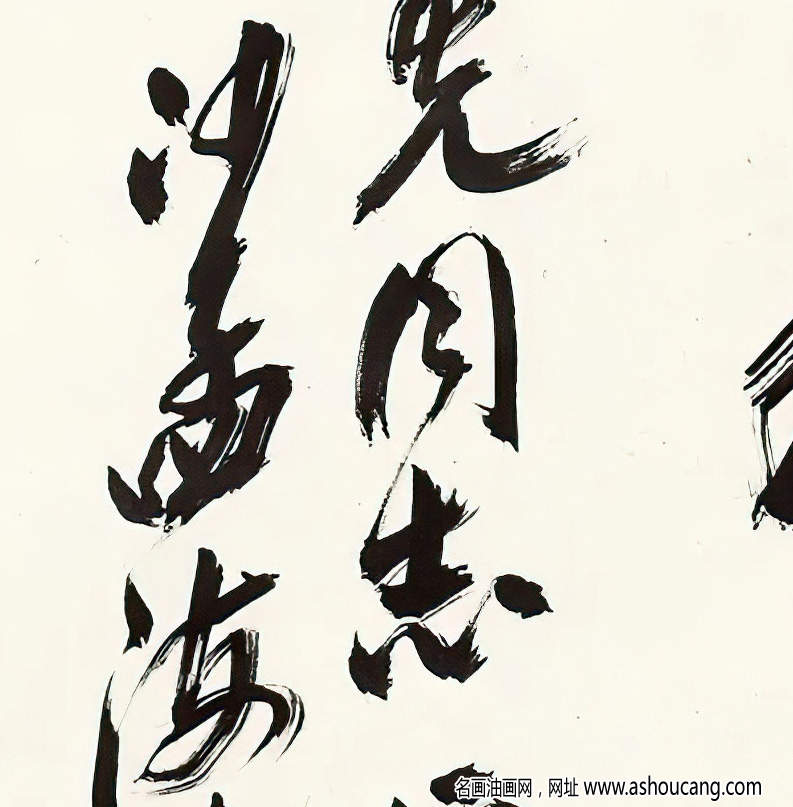 先同志
沙孟海
名画油画网，网址 www.ashoucang.com